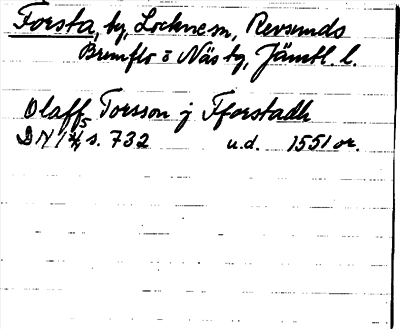 Forsta, by, Locknem, Revsunds
Brunflo o Näs tg, Jämtl. l.
Olaff Torsson j Fforstadh
DN 14/5 s. 732 u.d. 1551 or.